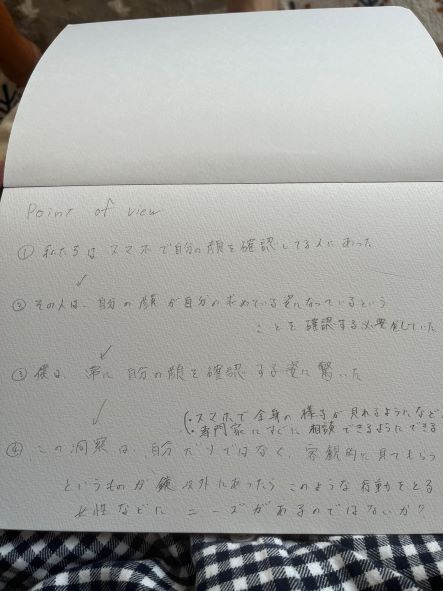 Point of view
① 私たちは スマホで自分の顔を確認してる人にあった
② その人は、自分の顔が自分の求めている姿になっているという
ことを確認する必要がしていた
③ 僕は、常に自分の顔を確認する姿に驚いた
(・スマホで全身の様子が見れるようになど、
・専門家にすぐに相談できるようにできる
④ この洞察は、自分だけではなく、客観的に見てもらう
というものが鏡以外にあったら このような行動をとる
女性などに ニーズがあるのではないか?